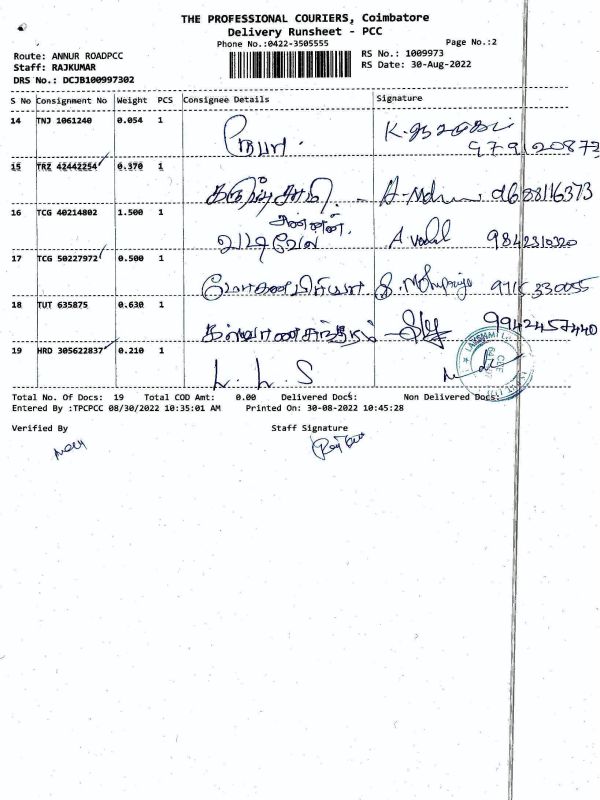 THE PROFESSIONAL COURIERS, Coimbatore
Delivery Runsheet - PCC
Phone No.:0422-3505555
Page No.:2
Route: ANNUR ROADPCC
RS No.: 1009973
Staff: RAJKUMAR
RS Date: 30-Aug-2022
DRS No.: DCJB100997302
S No Consignment No Weight PCS Consignee Details Signature
14 TNJ 1061240 0.054 1
15 TRZ 42442254 0.370 1
கருப்சாமி. 9688116373
16 TCG 40214802 1.500 1
அண்ணன்.
வடிவேல் A vadal 9842310320
17 TCG 50227972 0.500 1
மோகனபிரியா S. Mohanpriya 9715330055
18 TUT 635875 0.630 1
கல்யாணசுந்தரம் 9942457440
19 HRD 305622837 0.210 1
L. L. S
Total No. Of Docs: 19 Total COD Amt: 0.00 Delivered Docs: Non Delivered Docs:
Entered By :TPCPCC 08/30/2022 10:35:01 AM Printed On: 30-08-2022 10:45:28
Verified By Staff Signature